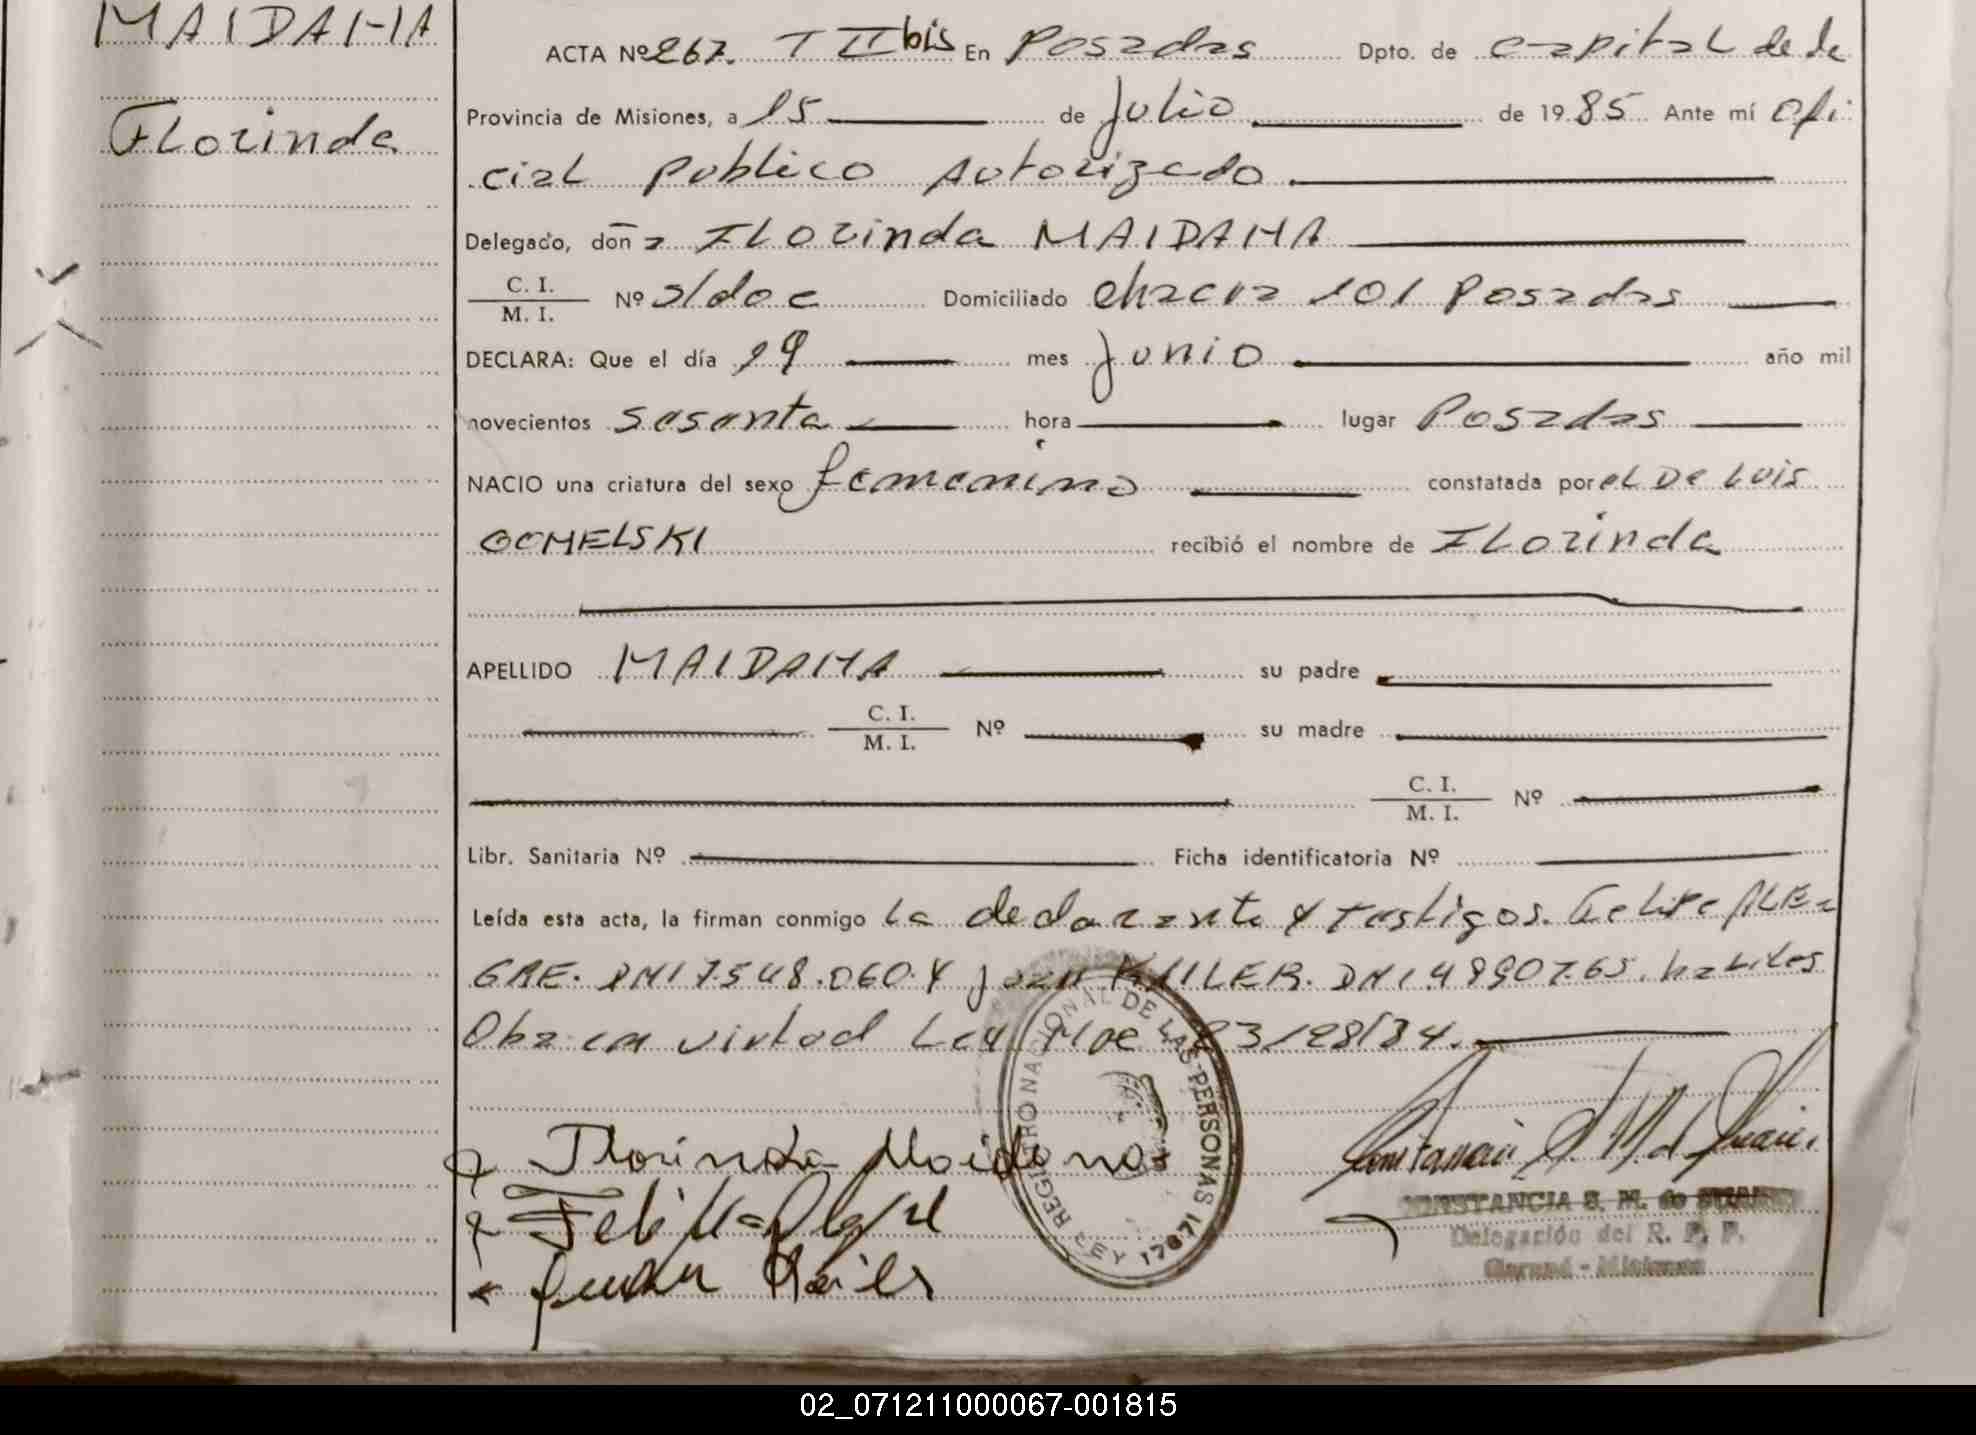 MAIDANA
Florinda
ACTA Nº 267. T II bis En Posadas Dpto. de capital de la
Provincia de Misiones, a 15 de Julio de 1985 Ante mí ofi
cial publico Autorizado
Delegado, don a Florinda MAIDANA
C. I. / M. I. Nº s/doc Domiciliado chacra 101 Posadas
DECLARA: Que el día 19 mes Junio año mil
novecientos sesenta hora lugar Posadas
NACIO una criatura del sexo femenino constatada por el De Luis
GOMELSKI recibió el nombre de Florinda
APELLIDO MAIDANA su padre
C. I. / M. I. Nº su madre
C. I. / M. I. Nº
Libr. Sanitaria Nº Ficha identificatoria Nº
Leída esta acta, la firman conmigo la declarante y testigos. Felipe ALE
GRE. DNI 7.548.060 y Juan DNI habiles
Obra en virtud Ley
Florinda Maidana
Juan
REGISTRO NACIONAL DE LAS PERSONAS
LEY 17671
CONSTANCIA S. M. de
Delegación del R. P. P.
Garupá - Misiones
02_071211000067-001815